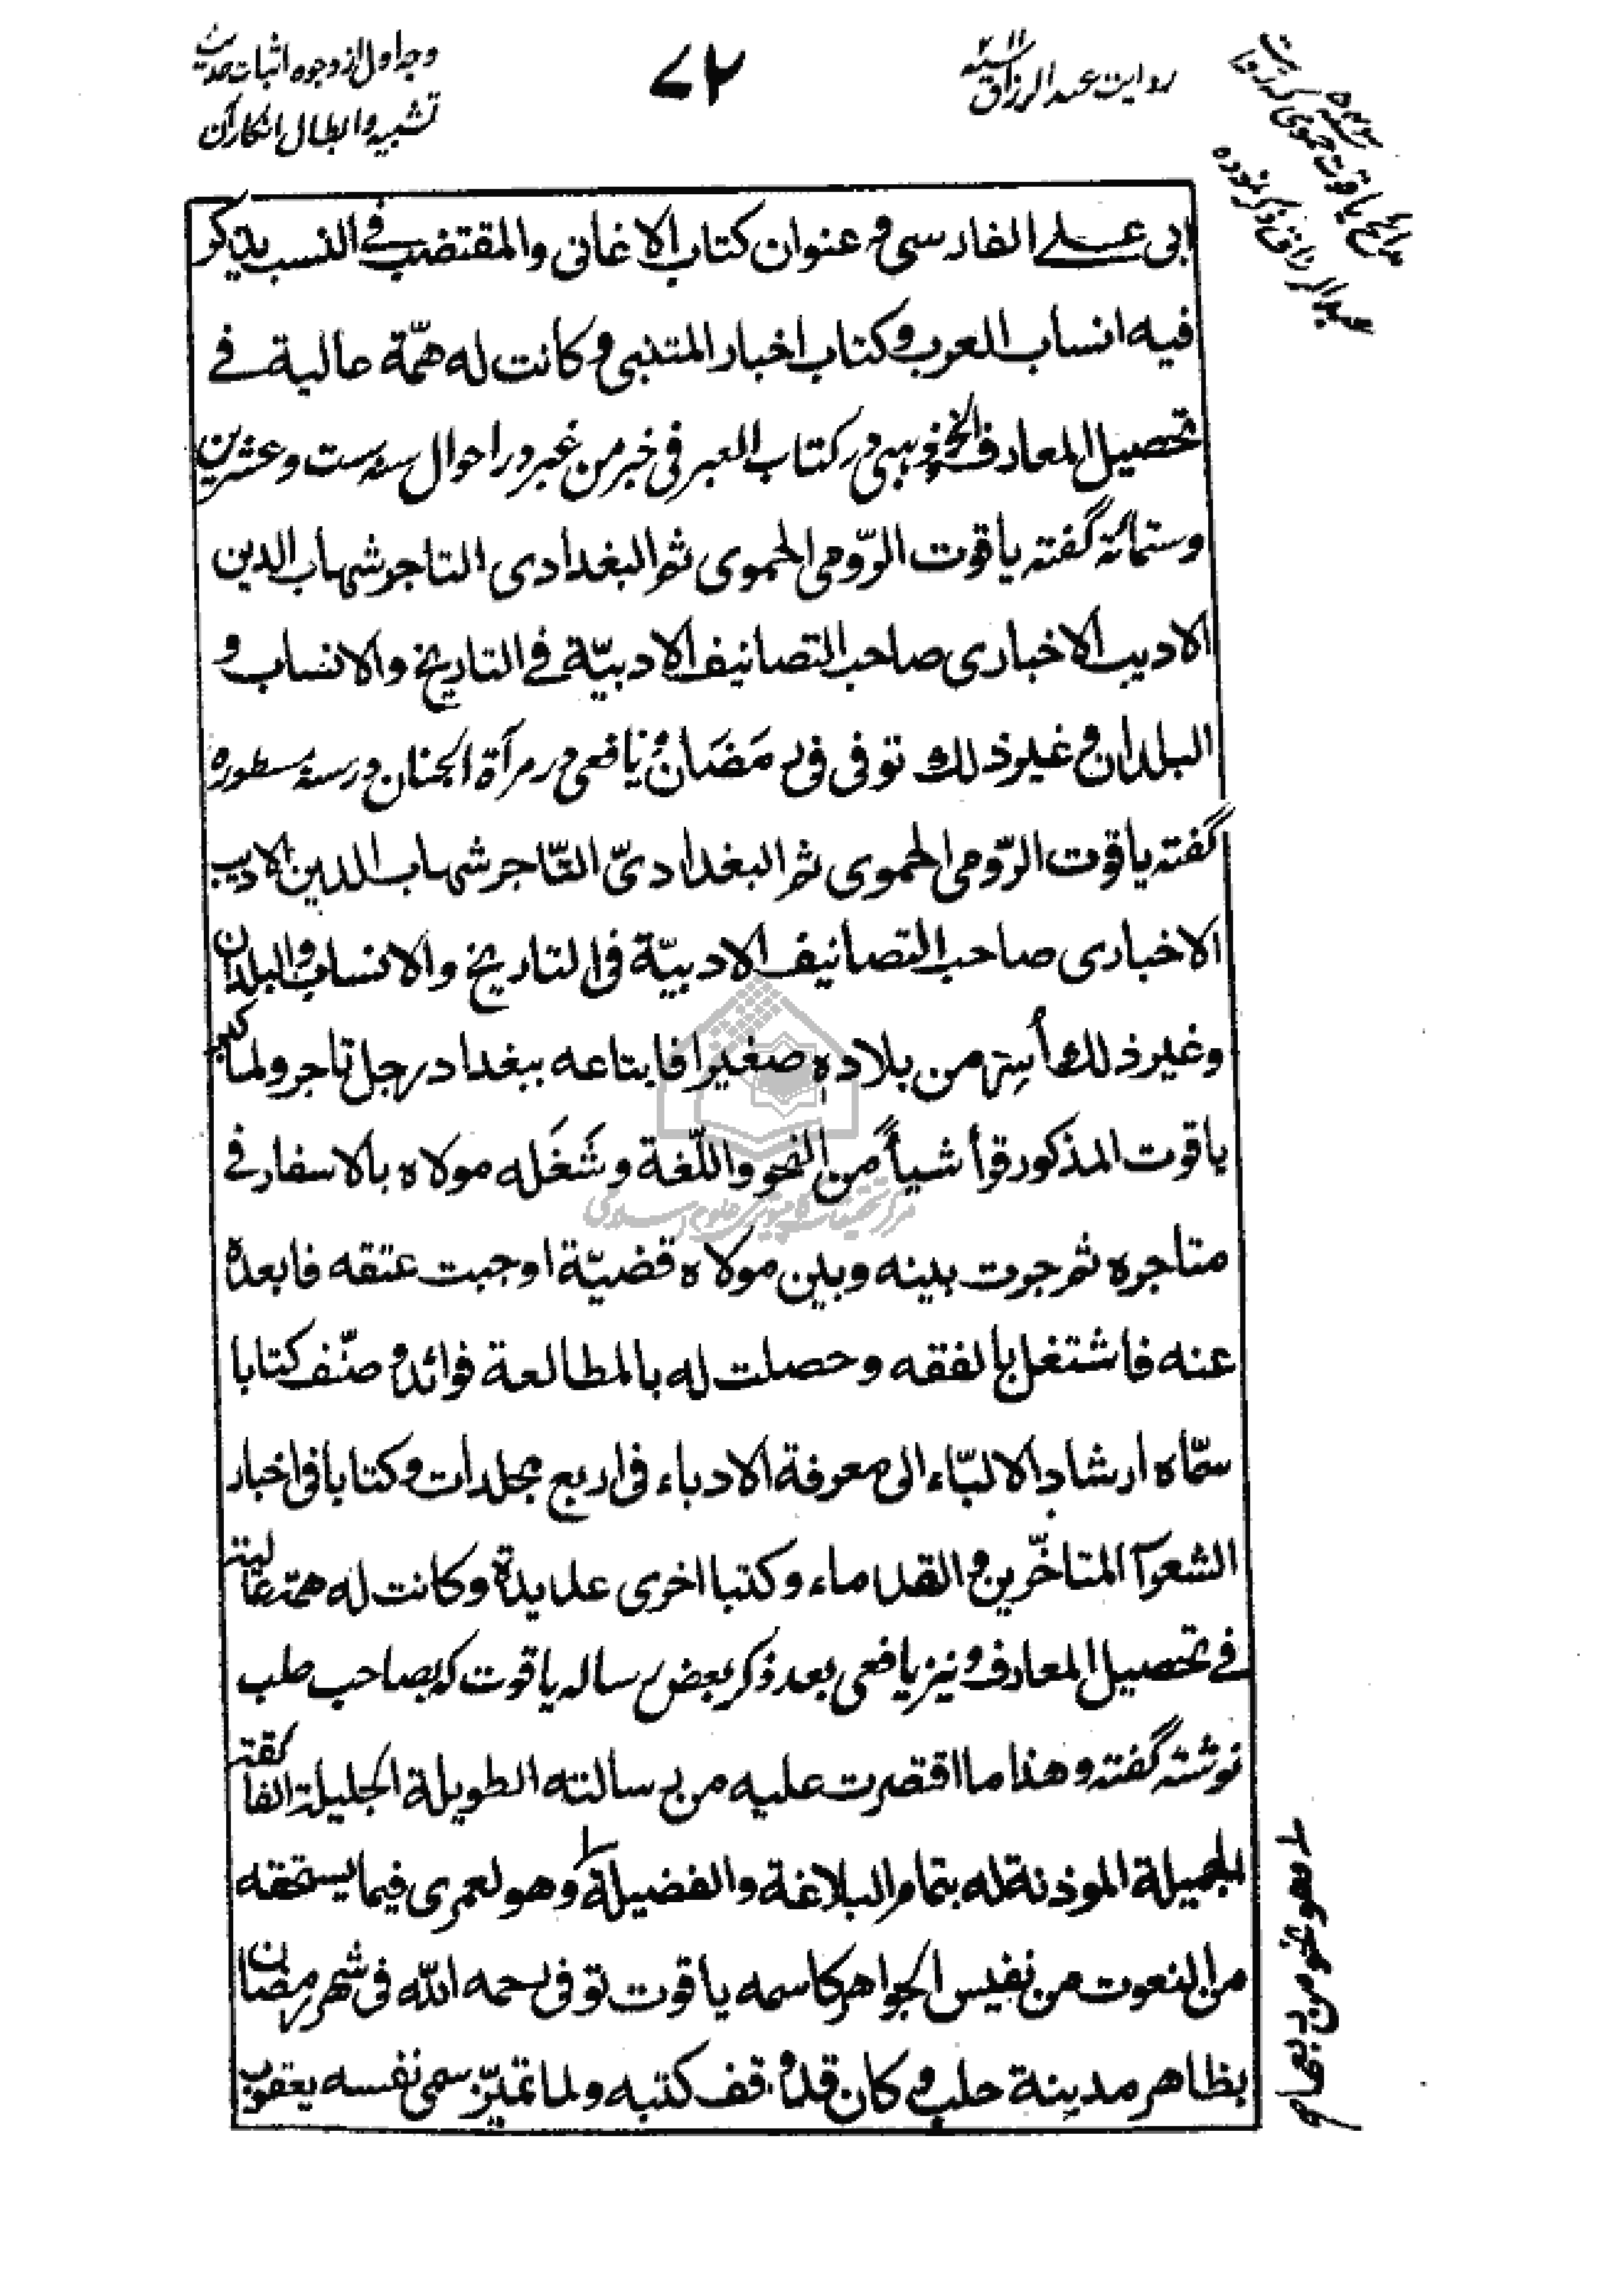 وجه اول از وجوه اثبات حدیث
تشبیه و ابطال انکار آن
۷۲
روایت عبد الرزاق
ابی علی الفارسی و عنوان کتاب الاغانی والمقتضب فی النسب یذکر
فیه انساب العرب و کتاب اخبار المتنبی و کانت له همّة عالیة فی
تحصیل المعارف الخ و ذهبی در کتاب العبر فی خبر من غبر در احوال سنه ست و عشرین
و ستمائة گفته یاقوت الرّومی الحموی ثم البغدادی التاجر شهاب الدین
الادیب الاخباری صاحب التصانیف الادبیّة فی التاریخ والانساب و
البلدان و غیر ذلک توفی فی رمَضَان و یافعی در مرآة الجنان در سنهٔ مسطوره
گفته یاقوت الرّومی الحموی ثم البغدادیّ التّاجر شهاب الدین الادیب
الاخباری صاحب التصانیف الادبیّة فی التاریخ والانساب والبلدان
و غیر ذلک أسِر من بلاده صغیرا فابتاعه ببغداد رجل تاجر ولما کبر
یاقوت المذکور قرأ شیأً من النحو واللّغة وشَغَله مولاه بالاسفار فی
متاجره ثم جرت بینه وبین مولاه قضیّة اوجبت عتقه فابعده
عنه فاشتغل بالفقه وحصلت له بالمطالعة فوائد و صنّف کتابا
سمّاه ارشاد الالبّاء الی معرفة الادباء فی اربع مجلدات و کتابا فی اخبار
الشعرآ المتاخّرین و القدماء و کتبا اخری عدیدة و کانت له همة عالیة
فی تحصیل المعارف و نیز یافعی بعد ذکر بعض رساله یاقوت که بصاحب حلب
نوشته گفته وهذا ما اقتصرت علیه من رسالته الطویلة الجلیلة الفائقة
الجمیلة الموذنة له بتمام البلاغة والفضیلة وهو لعمری فیما یستحقه
من النعوت من نفیس الجواهر کاسمه یاقوت توفی رحمه الله فی شهر رمضان
بظاهر مدینة حلب و کان قد وقف کتبه ولما تمیّز سمی نفسه یعقوب
مرکز تحقیقات کامپیوتری علوم اسلامی